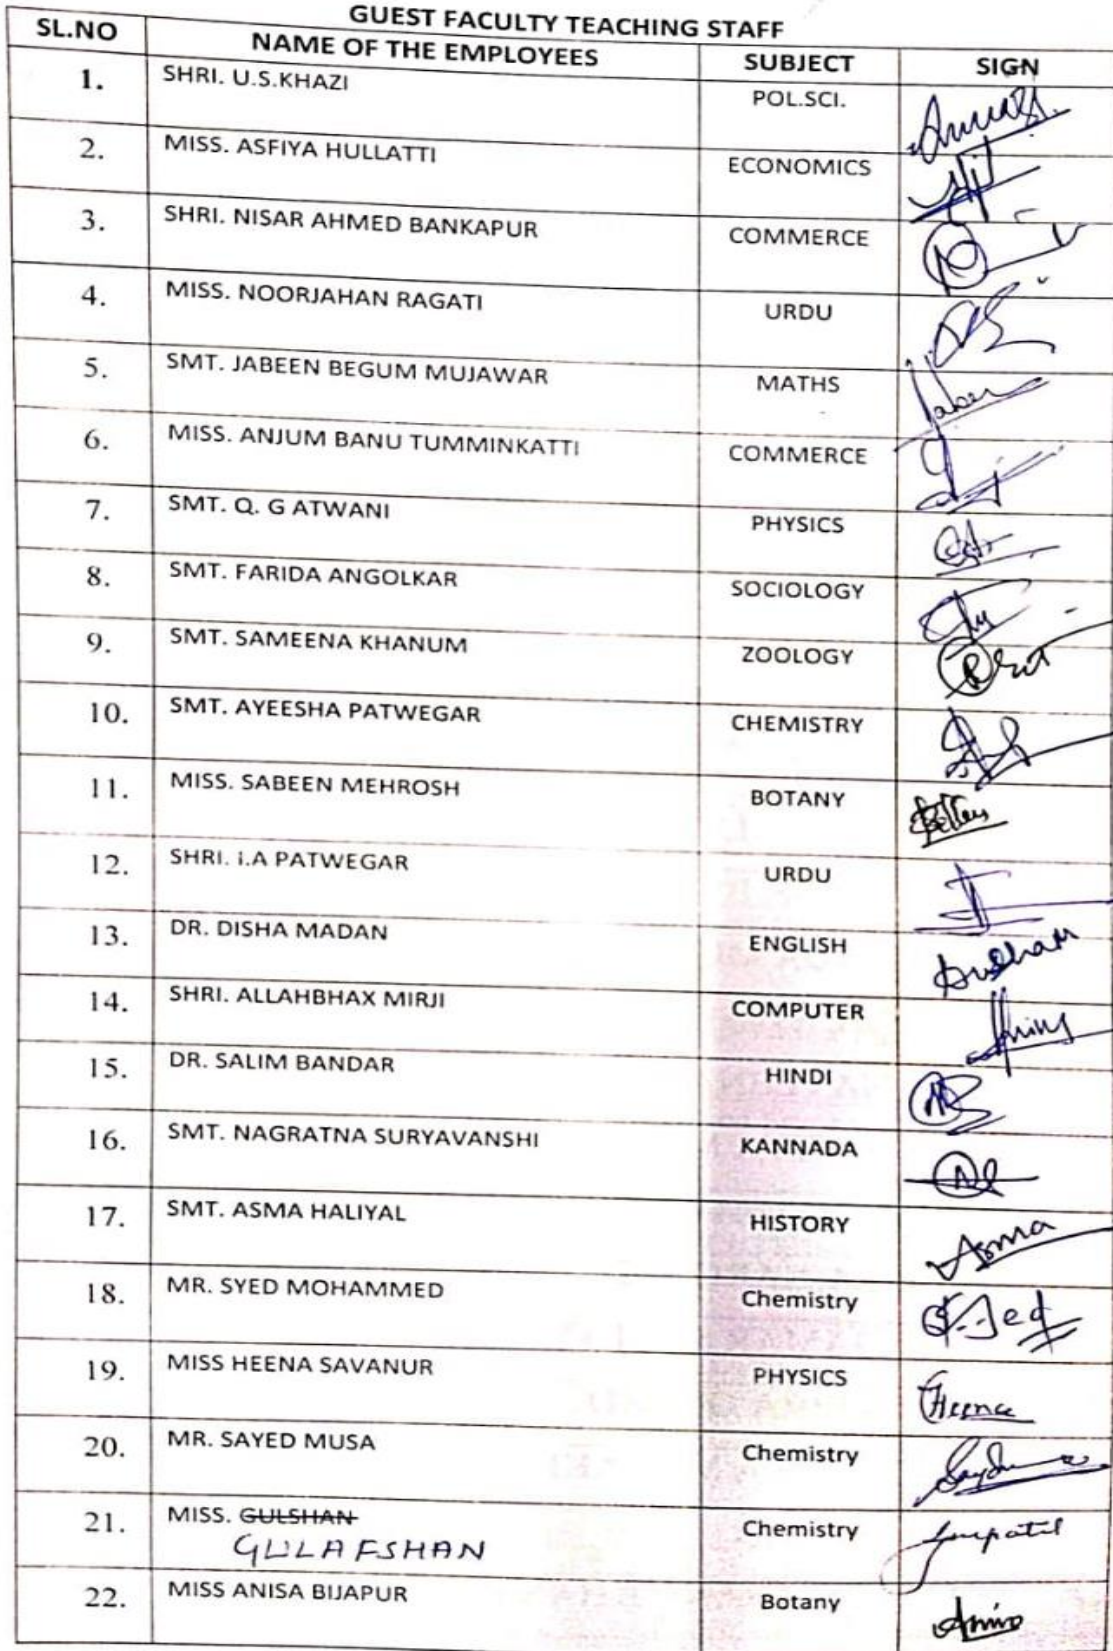 GUEST FACULTY TEACHING STAFF
SL.NO NAME OF THE EMPLOYEES SUBJECT SIGN
1. SHRI. U.S.KHAZI POL.SCI.
2. MISS. ASFIYA HULLATTI ECONOMICS
3. SHRI. NISAR AHMED BANKAPUR COMMERCE
4. MISS. NOORJAHAN RAGATI URDU
5. SMT. JABEEN BEGUM MUJAWAR MATHS
6. MISS. ANJUM BANU TUMMINKATTI COMMERCE
7. SMT. Q. G ATWANI PHYSICS
8. SMT. FARIDA ANGOLKAR SOCIOLOGY
9. SMT. SAMEENA KHANUM ZOOLOGY
10. SMT. AYEESHA PATWEGAR CHEMISTRY
11. MISS. SABEEN MEHROSH BOTANY
12. SHRI. I.A PATWEGAR URDU
13. DR. DISHA MADAN ENGLISH
14. SHRI. ALLAHBHAX MIRJI COMPUTER
15. DR. SALIM BANDAR HINDI
16. SMT. NAGRATNA SURYAVANSHI KANNADA
17. SMT. ASMA HALIYAL HISTORY Asma
18. MR. SYED MOHAMMED Chemistry
19. MISS HEENA SAVANUR PHYSICS Heena
20. MR. SAYED MUSA Chemistry
21. MISS. GULSHAN Chemistry
GULAFSHAN
22. MISS ANISA BIJAPUR Botany